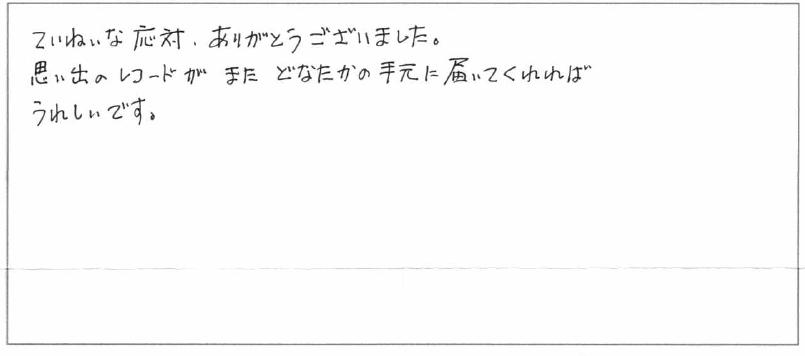 ていねいな応対、ありがとうございました。
思い出のレコードが また どなたかの手元に届いてくれれば
うれしいです。